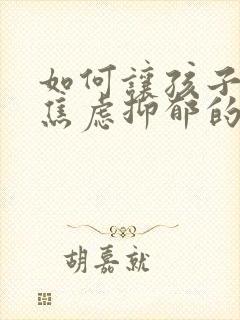 如何讓孩子
焦虑抑郁的
胡嘉就